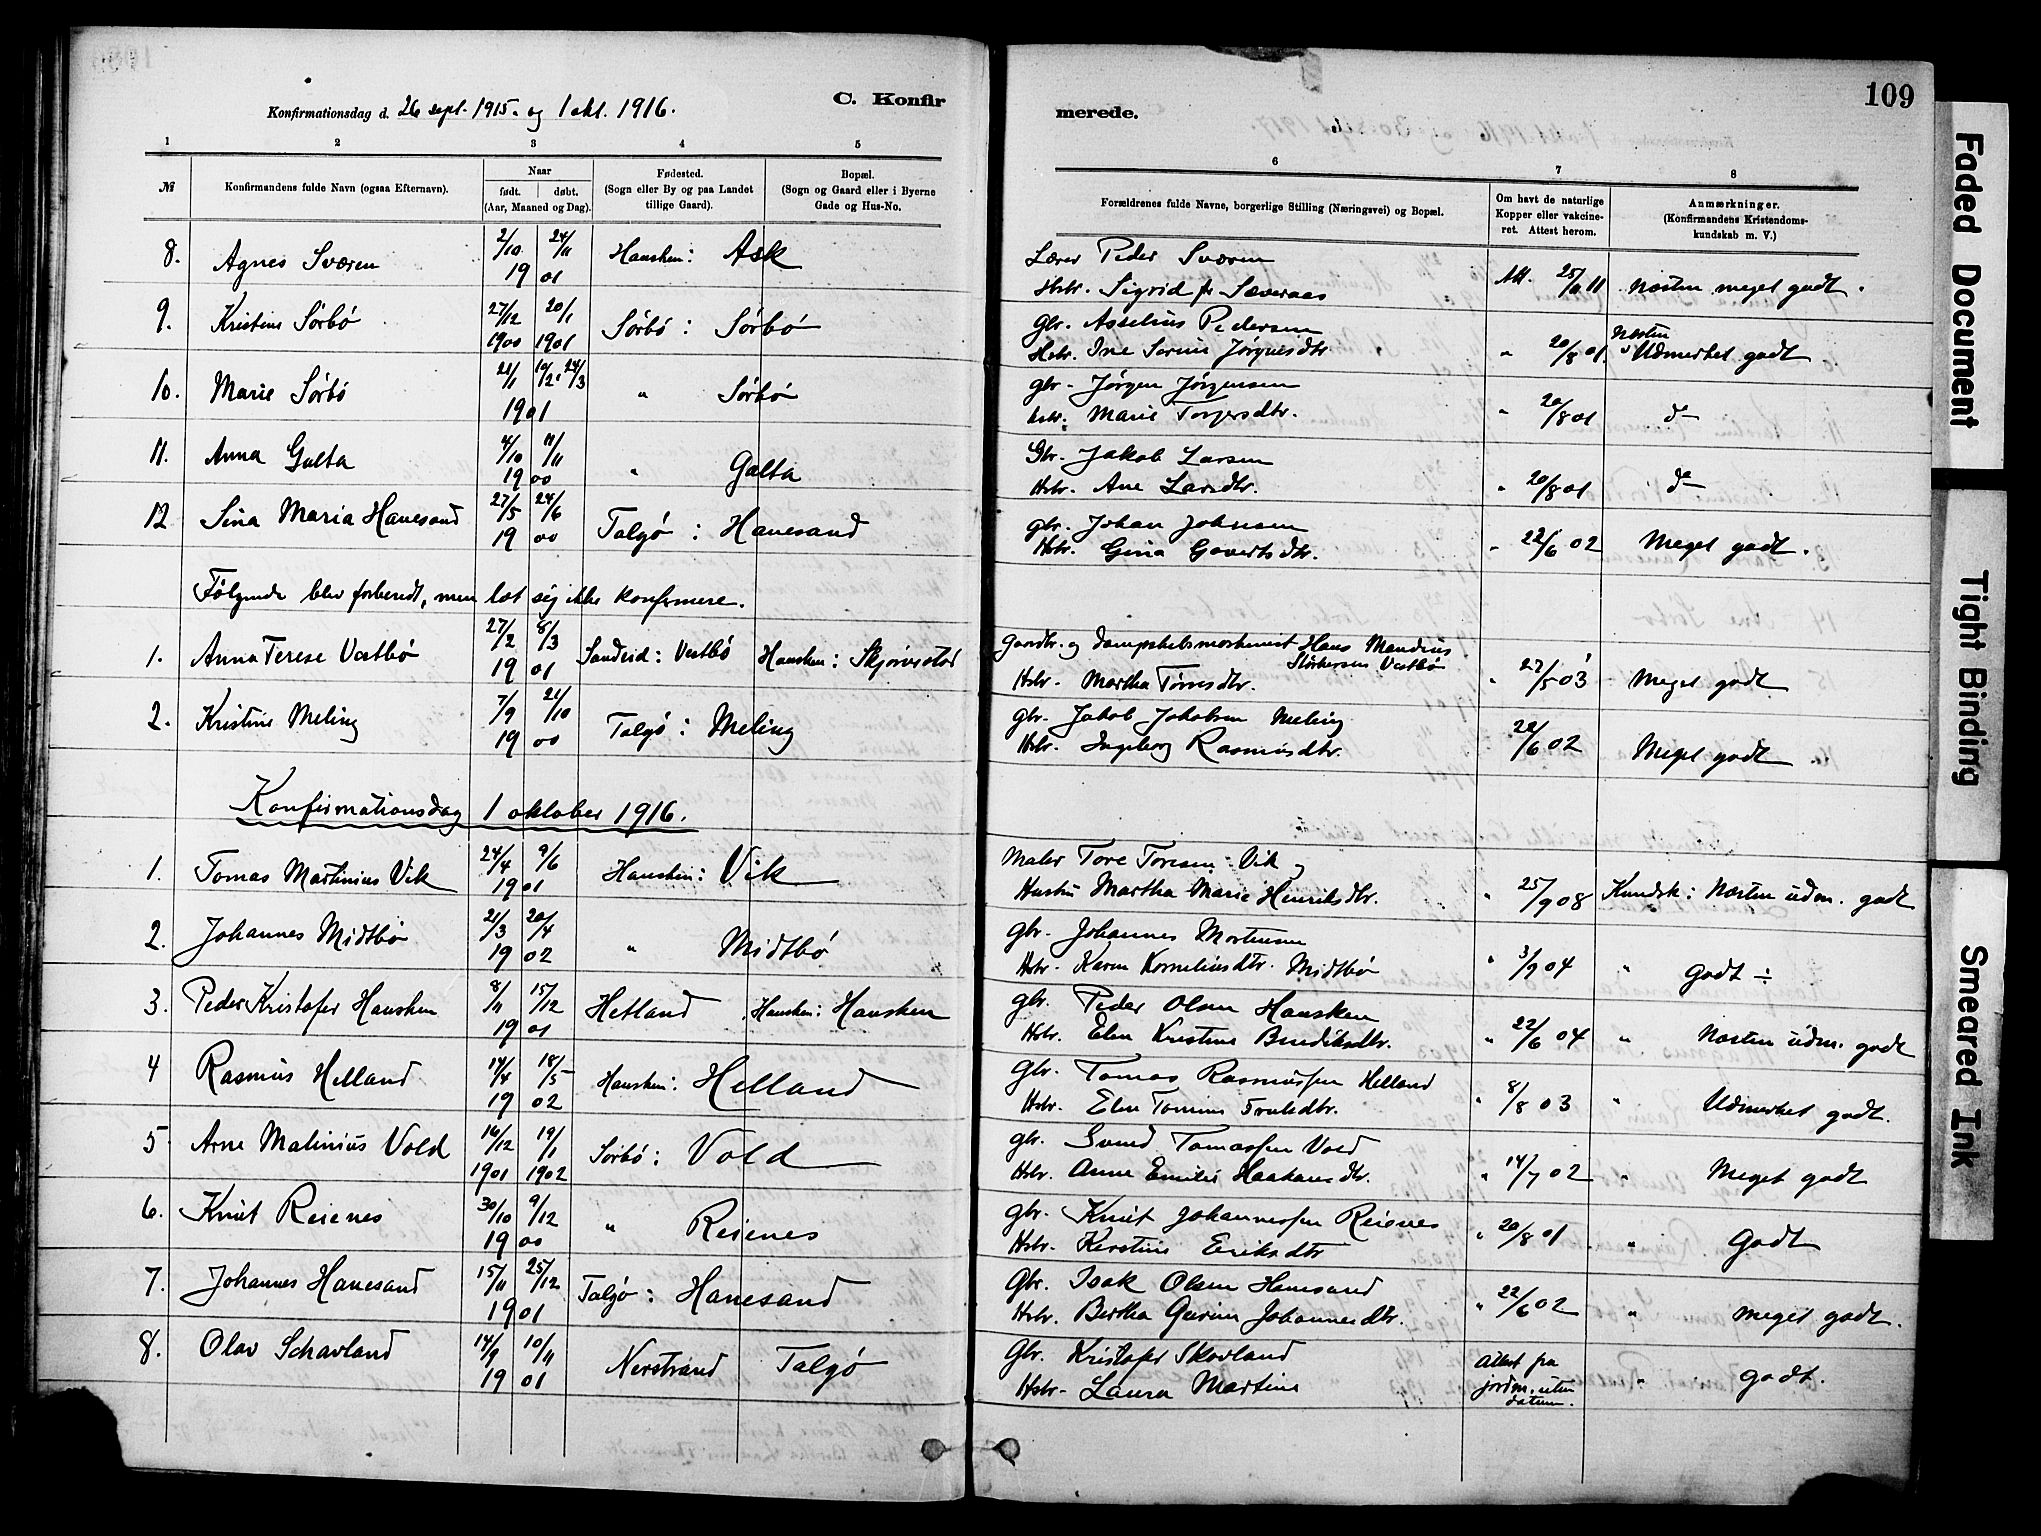 109
Konfirmationsdag d. 26 sept. 1915. og 1 okt. 1916.
C. Konfirmerede.
1 2 3 4 5 6 7 8
№
Konfirmandens fulde Navn (ogsaa Efternavn).
Naar
født. døbt.
(Aar, Maaned og Dag).
Fødested.
(Sogn eller By og paa Landet
tillige Gaard).
Bopæl.
(Sogn og Gaard eller i Byerne
Gade og Hus-No.
Forældrenes fulde Navne, borgerlige Stilling (Næringsvei) og Bopæl.
Om havt de naturlige
Kopper eller vakcine-
ret. Attest herom.
Anmærkninger.
(Konfirmandens Kristendoms-
kundskab m. V.)
8. Agnes Sværen 2/10 24/11 1901 Hausken: Ask Lærer Peder Sværen
Hstr. Sigrid f. Sævernes Att. 25/11 11 Næsten meget godt.
9. Kristine Sørbø 27/12 1900 20/1 1901 Sørbø: Sørbø Gbr. Asselius Pedersen
Hstr. Ine Serine Jørginesdtr " 20/8 01. Næsten Udmerket godt
10. Marie Sørbø 21/1 10/2. 24/3 1901 " Sørbø gbr. Jørgen Jørgensen
hstr. Marie Torgersdtr. " 20/8 01 do
11. Anna Galta 4/10 11/11 1900 " Galta Gbr. Jakob Larsen
Hstr. Ane Larsdtr. " 20/8 01 do
12 Sina Maria Hanesand 27/5 24/6 1900 Talgø: Hanesand gbr. Johan Johnsen
Hstr. Gina Govertsdtr. " 22/6 02 Meget godt.
Følgende blev forberedt, men lot sig ikke konfirmere.
1. Anna Terese Vestbø 27/2 8/3 1901 Sandeid: Vestbø Hausken: Skjørvestad Gaardbr. og dampskibsmaskinist Hans Mandius
Størkersen Vestbø
Hstr. Martha Tørresdtr. " 27/5 03 Meget godt
2. Kristine Meling 7/9 21/10 1900 Talgø: Meling gbr. Jakob Jakobsen Meling
Hstr. Ingeborg Rasmusdtr. 22/6 02 Meget godt
Konfirmationsdag 1 oktober 1916.
1. Tomas Martinius Vik 24/4 9/6 1901 Hausken: Vik Maler Tore Toresen Vik og
Hustru Martha Marie Henriksdtr. " 25/9 08 Kundsk: Næsten udm. godt
2. Johannes Midtbø 21/3 20/4 1902 " Midtbø gbr. Johannes Mortensen
Hstr. Karen Korneliusdtr. Midtbø " 3/9 04 " Godt ÷
3. Peder Kristofer Hausken 8/11 15/12 1901 Hetland Hausken: Hausken gbr. Peder Olsen Hausken
Hstr. Elen Kristine Bendiksdtr. " 22/6 04 " Næsten udm. godt
4 Rasmus Helland 14/4 18/5 1902 Hausken: Helland Gbr. Tomas Rasmussen Helland
Hstr. Elen Tomine " 8/8 03 " Udmerket godt.
5 Arne Malinius Vold 16/12 1901 19/1 1902 Sørbø: Vold gbr. Svend Tomassen Vold
Hstr. Anne Emilie Haakansdtr. " 14/7 02 " Meget godt
6. Knut Reienes 30/10 9/12 1900 " Reienes gbr. Knut Johannessen Reienes
Hstr. Kerstine Eriksdtr " 20/8 01 " Godt
7. Johannes Hanesand 15/11 25/12 1901 Talgø: Hanesand Gbr. Isak Olsen Hanesand
Hstr. Bertha Gurine Johannesdtr. " 22/6 02 " Meget godt.
8. Olav Schavland 14/9 10/11 1901 Nerstrand Talgø Gbr. Kristofer Skovland
Hstr. Laura Martine Attest fra
jordm. uten
datum. " godt.
Faded Document
Tight Binding
Smeared Ink